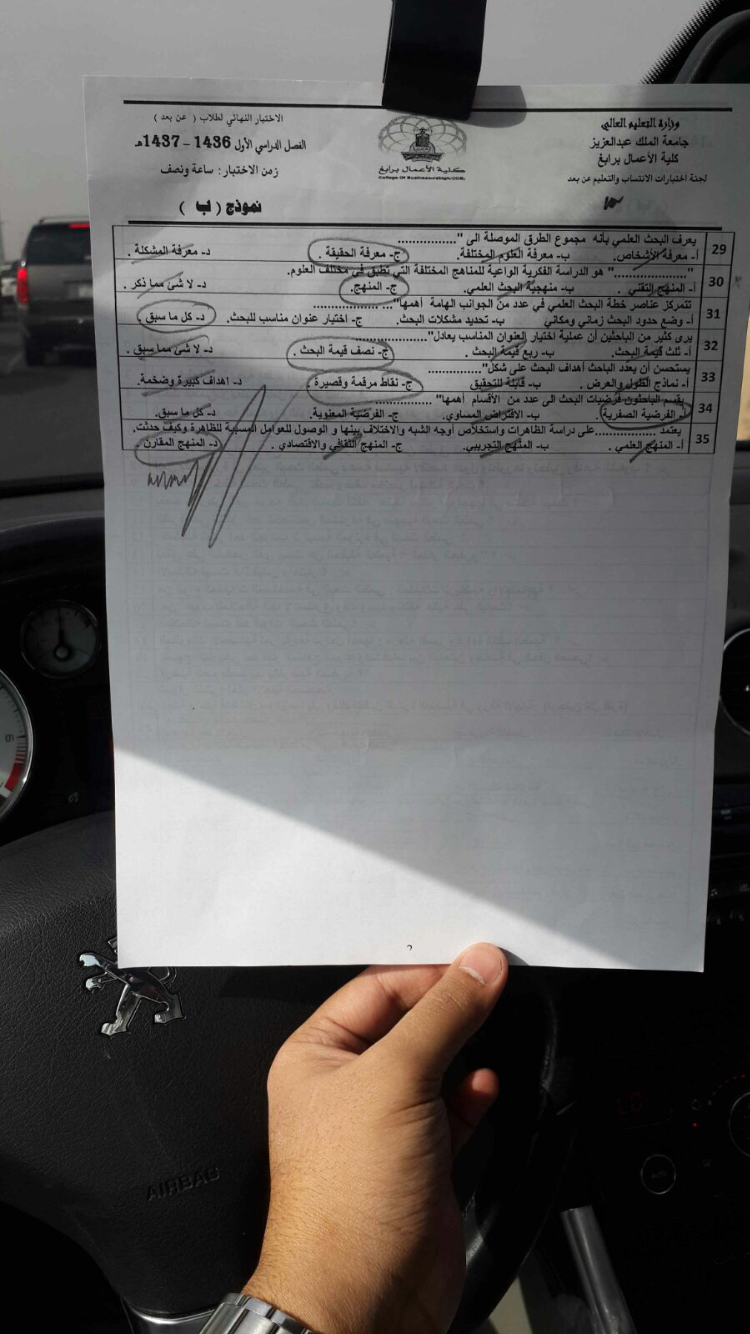 وزارة التعليم العالي
جامعة الملك عبدالعزيز
كلية الأعمال برابغ
لجنة اختبارات الانتساب والتعليم عن بعد
كلية الأعمال برابغ
الاختبار النهائي لطلاب ( عن بعد )
الفصل الدراسي الأول 1436 – 1437هـ
زمن الاختبار: ساعة ونصف
نموذج ( ب )
29 يعرف البحث العلمي بأنه مجموع الطرق الموصلة الى "................
أ- معرفة الأشخاص. ب- معرفة العلوم المختلفة. ج- معرفة الحقيقة . د- معرفة المشكلة .
30 "................" هو الدراسة الفكرية الواعية للمناهج المختلفة التي تطبق في مختلف العلوم.
أ- المنهج التقني . ب- منهجية البحث العلمي. ج- المنهج. د- لا شئ مما ذكر .
31 تتمركز عناصر خطة البحث العلمي في عدد من الجوانب الهامة أهمها"................
أ- وضع حدود البحث زماني ومكاني ب- تحديد مشكلات البحث. ج- اختيار عنوان مناسب للبحث. د- كل ما سبق .
32 يرى كثير من الباحثين أن عملية اختيار العنوان المناسب يعادل"................
أ- ثلث قيمة البحث. ب- ربع قيمة البحث . ج- نصف قيمة البحث . د- لا شئ مما سبق .
33 يستحسن أن يعدد الباحث أهداف البحث على شكل"................
أ- نماذج الطول والعرض . ب- قابلة للتحقيق ج- نقاط مرقمة وقصيرة . د- اهداف كبيرة وضخمة.
34 يقسم الباحثون فرضيات البحث الى عدد من الأقسام أهمها"................
أ- الفرضية الصفرية. ب- الافتراض المساوي. ج- الفرضية المعنوية. د- كل ما سبق.
35 يعتمد ................على دراسة الظاهرات واستخلاص أوجه الشبه والاختلاف بينها و الوصول للعوامل المسببة للظاهرة وكيف حدثت.
أ- المنهج العلمي . ب- المنهج التجريبي. ج- المنهج الثقافي والاقتصادي . د- المنهج المقارن .
AIRBAG